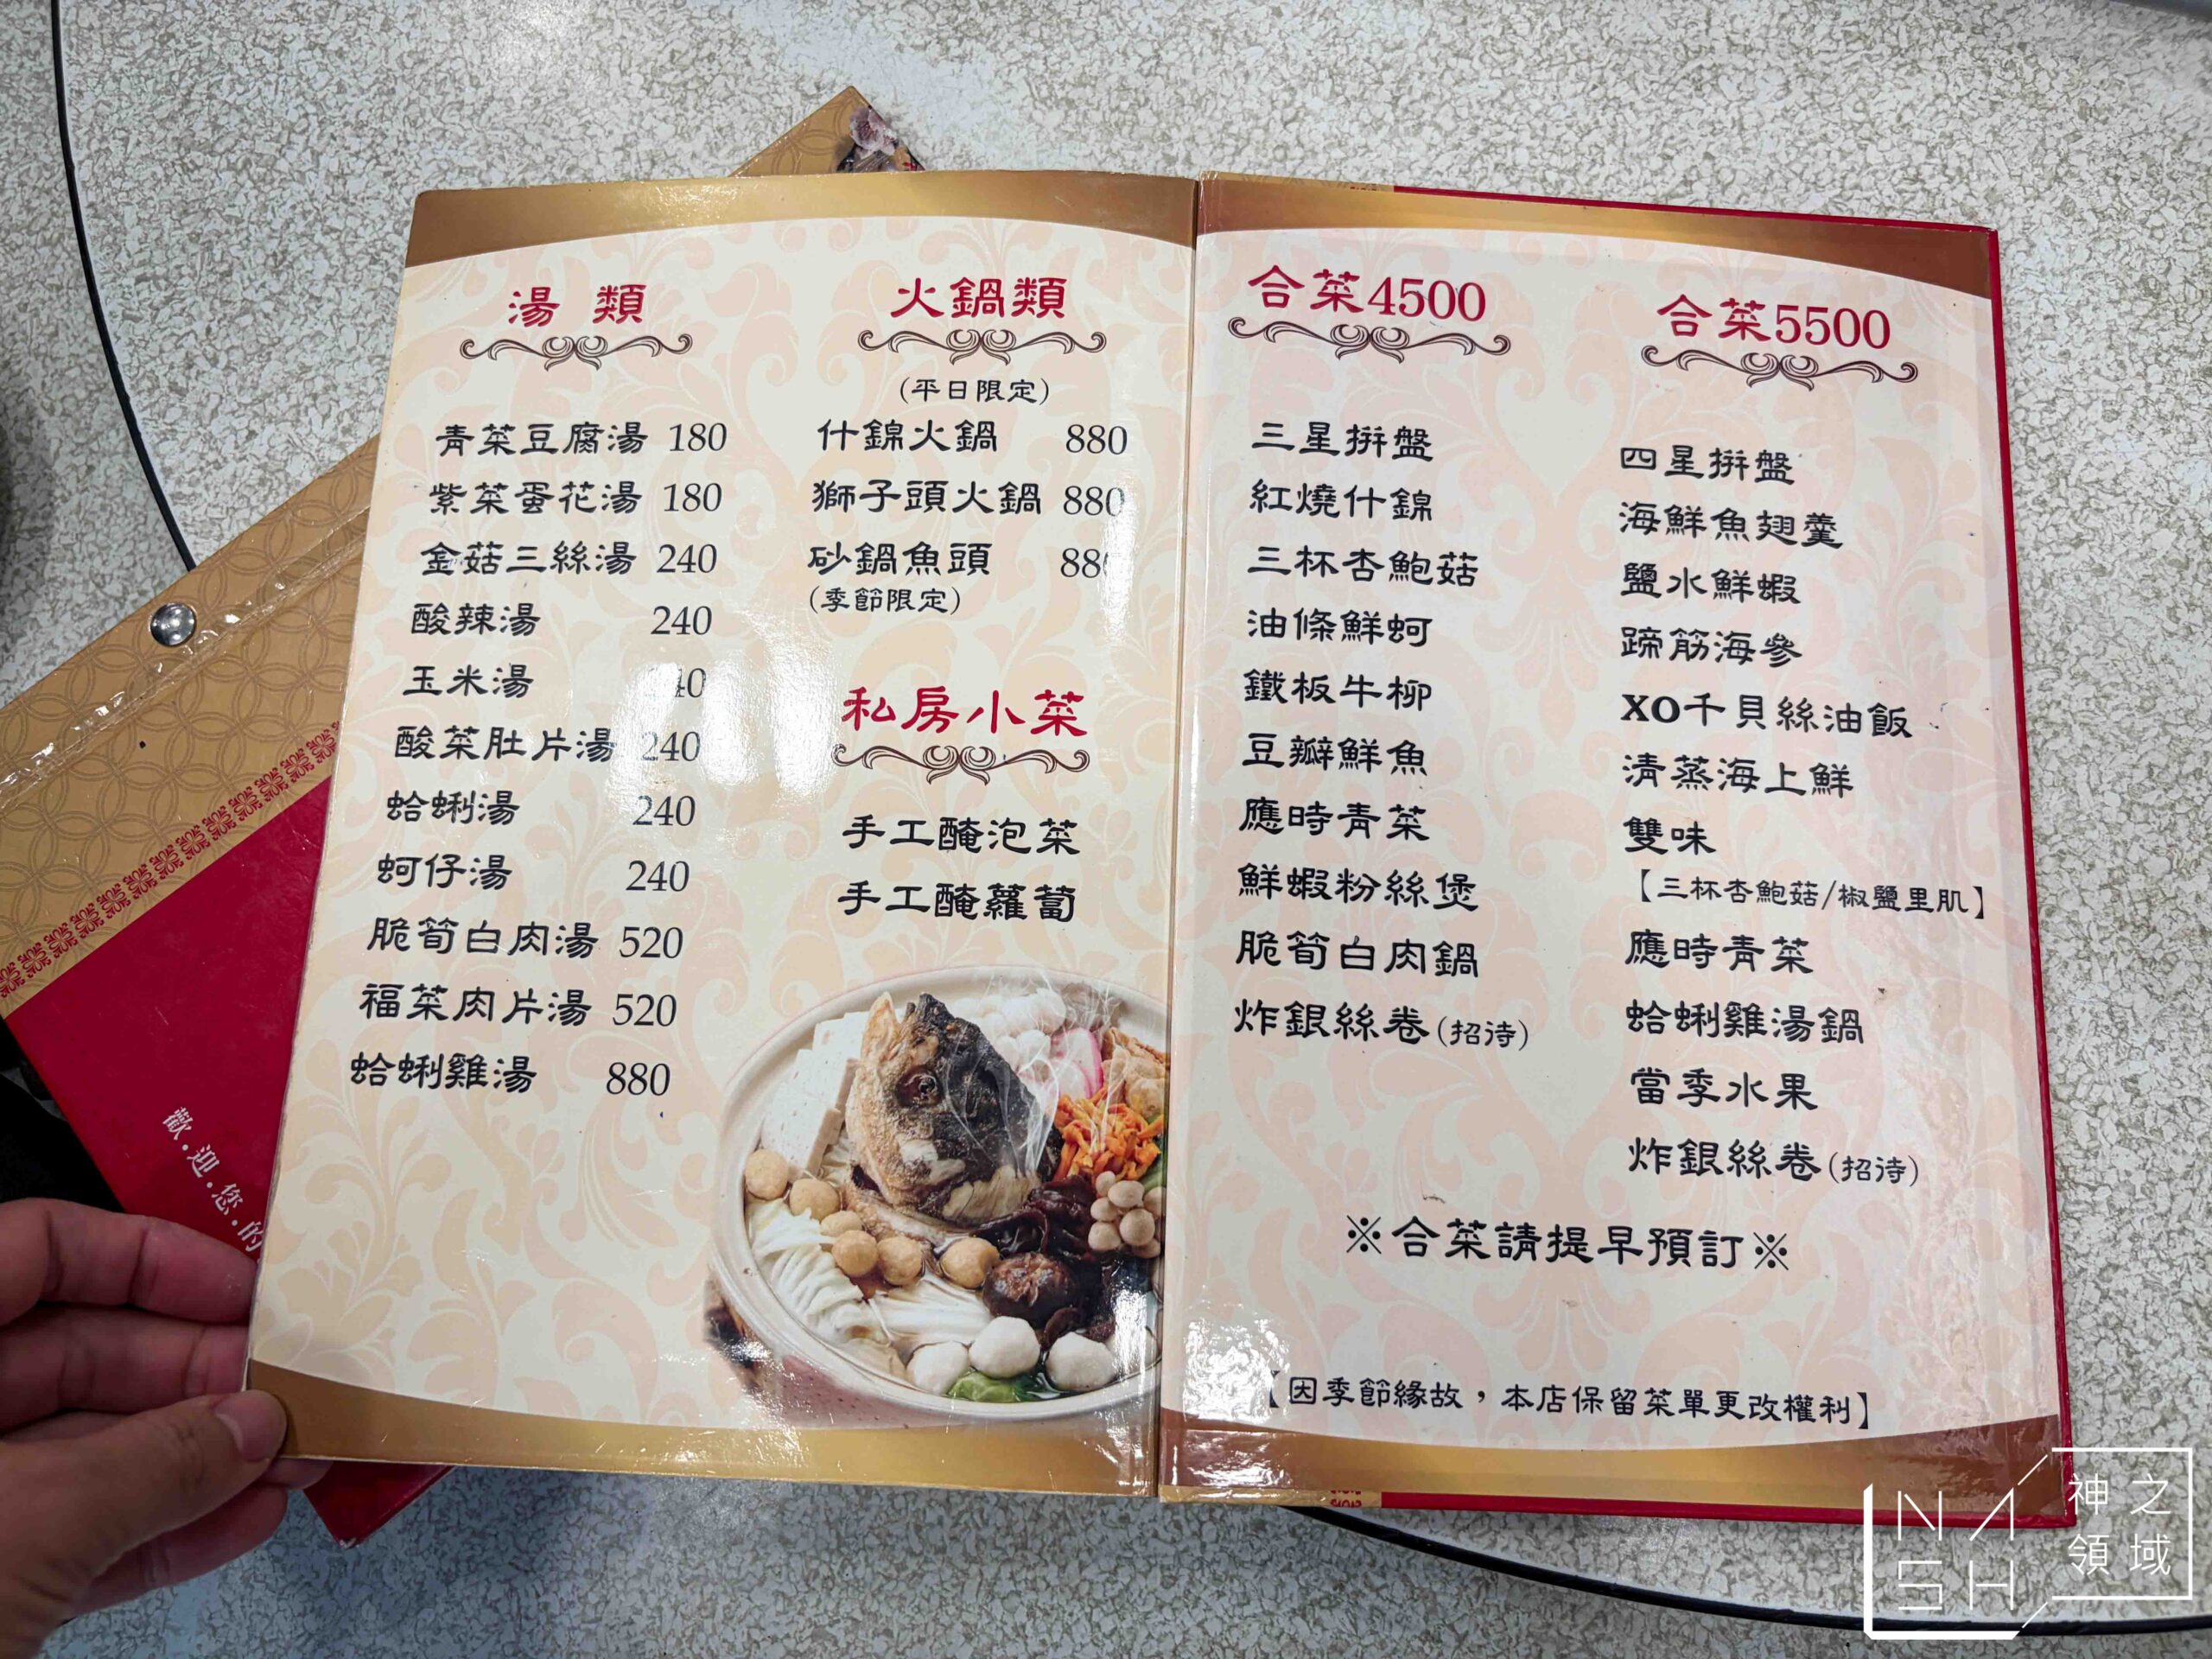 湯 類
青菜豆腐湯 180
紫菜蛋花湯 180
金菇三絲湯 240
酸辣湯 240
玉米湯 40
酸菜肚片湯 240
蛤蜊湯 240
蚵仔湯 240
脆筍白肉湯 520
福菜肉片湯 520
蛤蜊雞湯 880
火鍋類
(平日限定)
什錦火鍋 880
獅子頭火鍋 880
砂鍋魚頭 880
(季節限定)
私房小菜
手工醃泡菜
手工醃蘿蔔
合菜4500
三星拼盤
紅燒什錦
三杯杏鮑菇
油條鮮蚵
鐵板牛柳
豆瓣鮮魚
應時青菜
鮮蝦粉絲煲
脆筍白肉鍋
炸銀絲卷(招待)
合菜5500
四星拼盤
海鮮魚翅羹
鹽水鮮蝦
蹄筋海參
XO干貝絲油飯
清蒸海上鮮
雙味
【三杯杏鮑菇/椒鹽里肌】
應時青菜
蛤蜊雞湯鍋
當季水果
炸銀絲卷(招待)
※合菜請提早預訂※
【因季節緣故，本店保留菜單更改權利】
歡.迎.您.的
NASH
神之領域